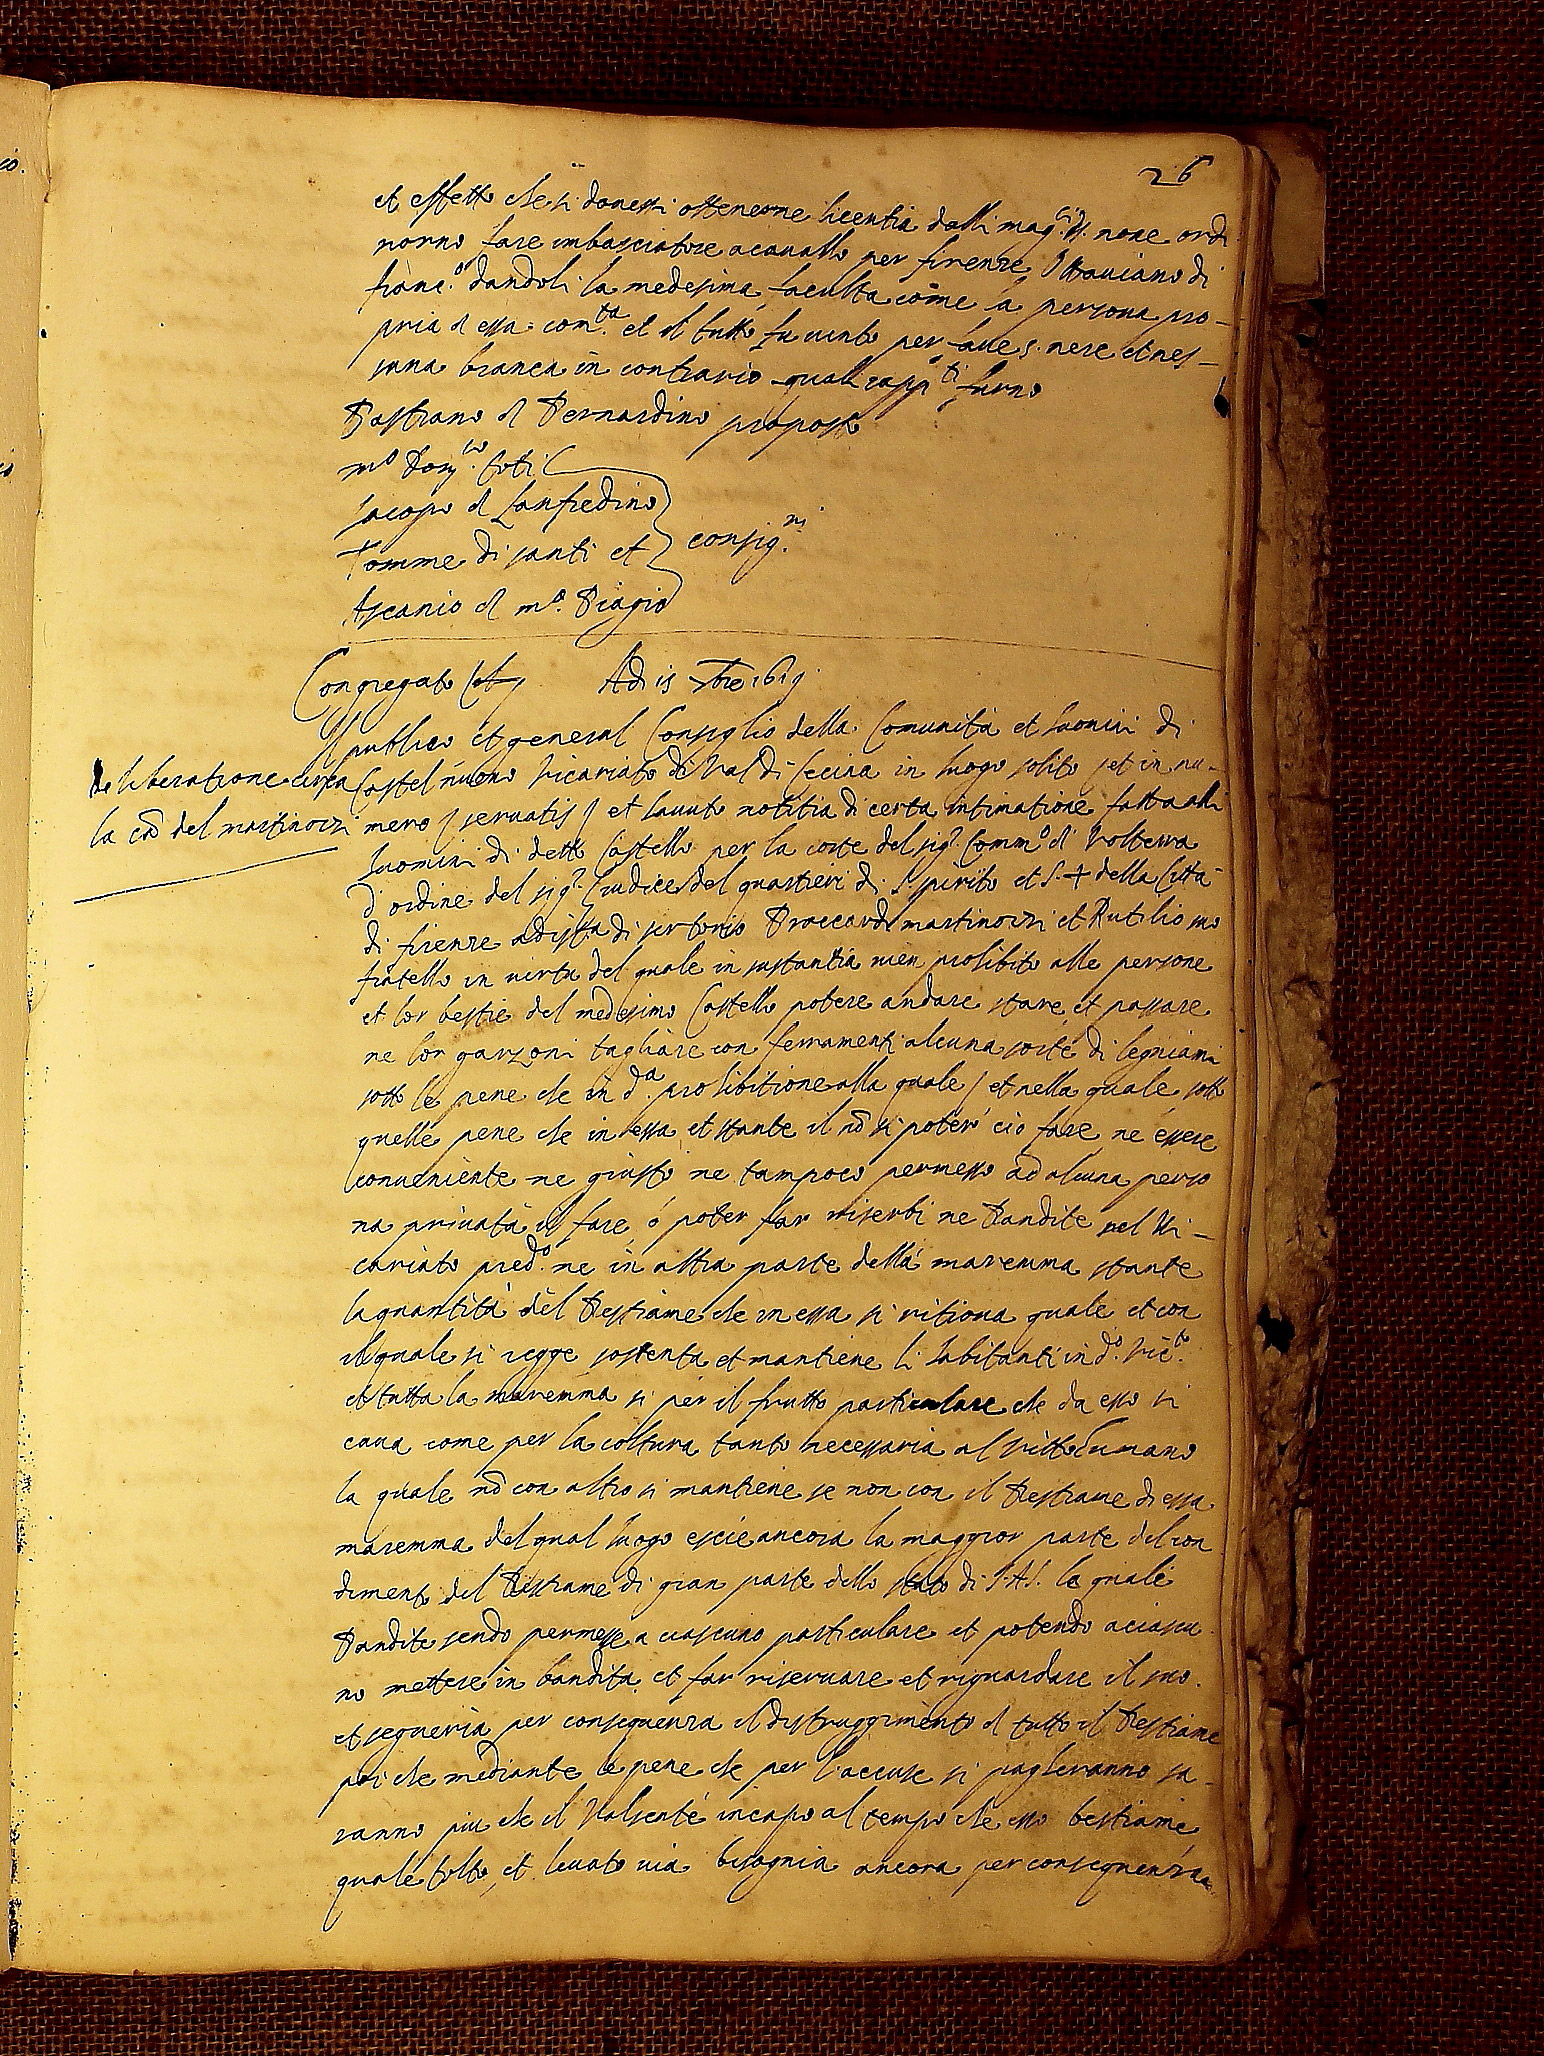 26
et effetto che si dovessi ottenerne licentia dalli mag.ci SS. nove ordi
norno fare imbasciatore acavallo per firenze Ottaviano di
franc.o dandoli la medesima faculta come a persona pro-
pria d essa com.ta et il tutto fu vinto per fave 5 nere et nes-
suna bianca in contrario quali rapp.ti furno
Bastiano d Bernardino proposto
m.o Dom.co Coti
Jacopo d Lanfredino
Tomme di santi et
consig.ri
Ascanio d m.o Biagio
Congregato Adi 15
Il publico et general Consiglio della Comunita et huomini di
deliberatione circa
Castelnuovo Vicariato di Val di Cecina in luogo solito et in nu-
la cã del martinozzi
mero servatis et havuto notitia di certa intimatione fatta alli
huomini di detto Castello per la corte del sig.r Comm.o di Volterra
d ordine del sig.r Giudice del quartieri di S. spirito et S. + della Citta
di firenze adista di sertorio martinozzi et Rutilio suo
fratello in virtu del quale in sustantia vien prohibito alle persone
et lor bestie del medesimo Castello potere andare stare et passare
ne lor garzoni tagliare con ferramenti alcuna sorte di legniami
sotto le pene che in d.a prohibitione alla quale / et nella quale sotto
quelle pene che in essa et stante il nõ si poter ciò fare ne essere
conveniente ne giusto ne tampoco permesso ad alcuna perso
na privata il fare o poter far riserbi ne Bandite nel Vi-
cariato pred.o ne in altra parte della maremma stante
la quantità del Bestiame che in essa si ritrova quale et con
il quale si regge sostenta et mantiene li habitanti in d.o Vic.to
et tutta la maremma si per il frutto particulare che da esso si
cava come per la coltura tanto necessaria al vitto humano
la quale nõ con altro si mantiene se non con il Bestiame di essa
maremma del qual luogo escie ancora la maggior parte del con
dimento del Bestiame di gran parte dello stato di S.A.S. le quale
Bandite sendo permesse a ciascuno particulare et potendo aciascu
no mettere in bandita et far riservare et riguardare il suo
et segueria per conseguenza il distruggimento d tutto il Bestiame
poi che mediante le pene che per l accuse si pagheranno sa-
ranno piu che il Valsente incapo al tempo che esso bestiame
quale tolto et levato via bisognia ancora per conseguenza